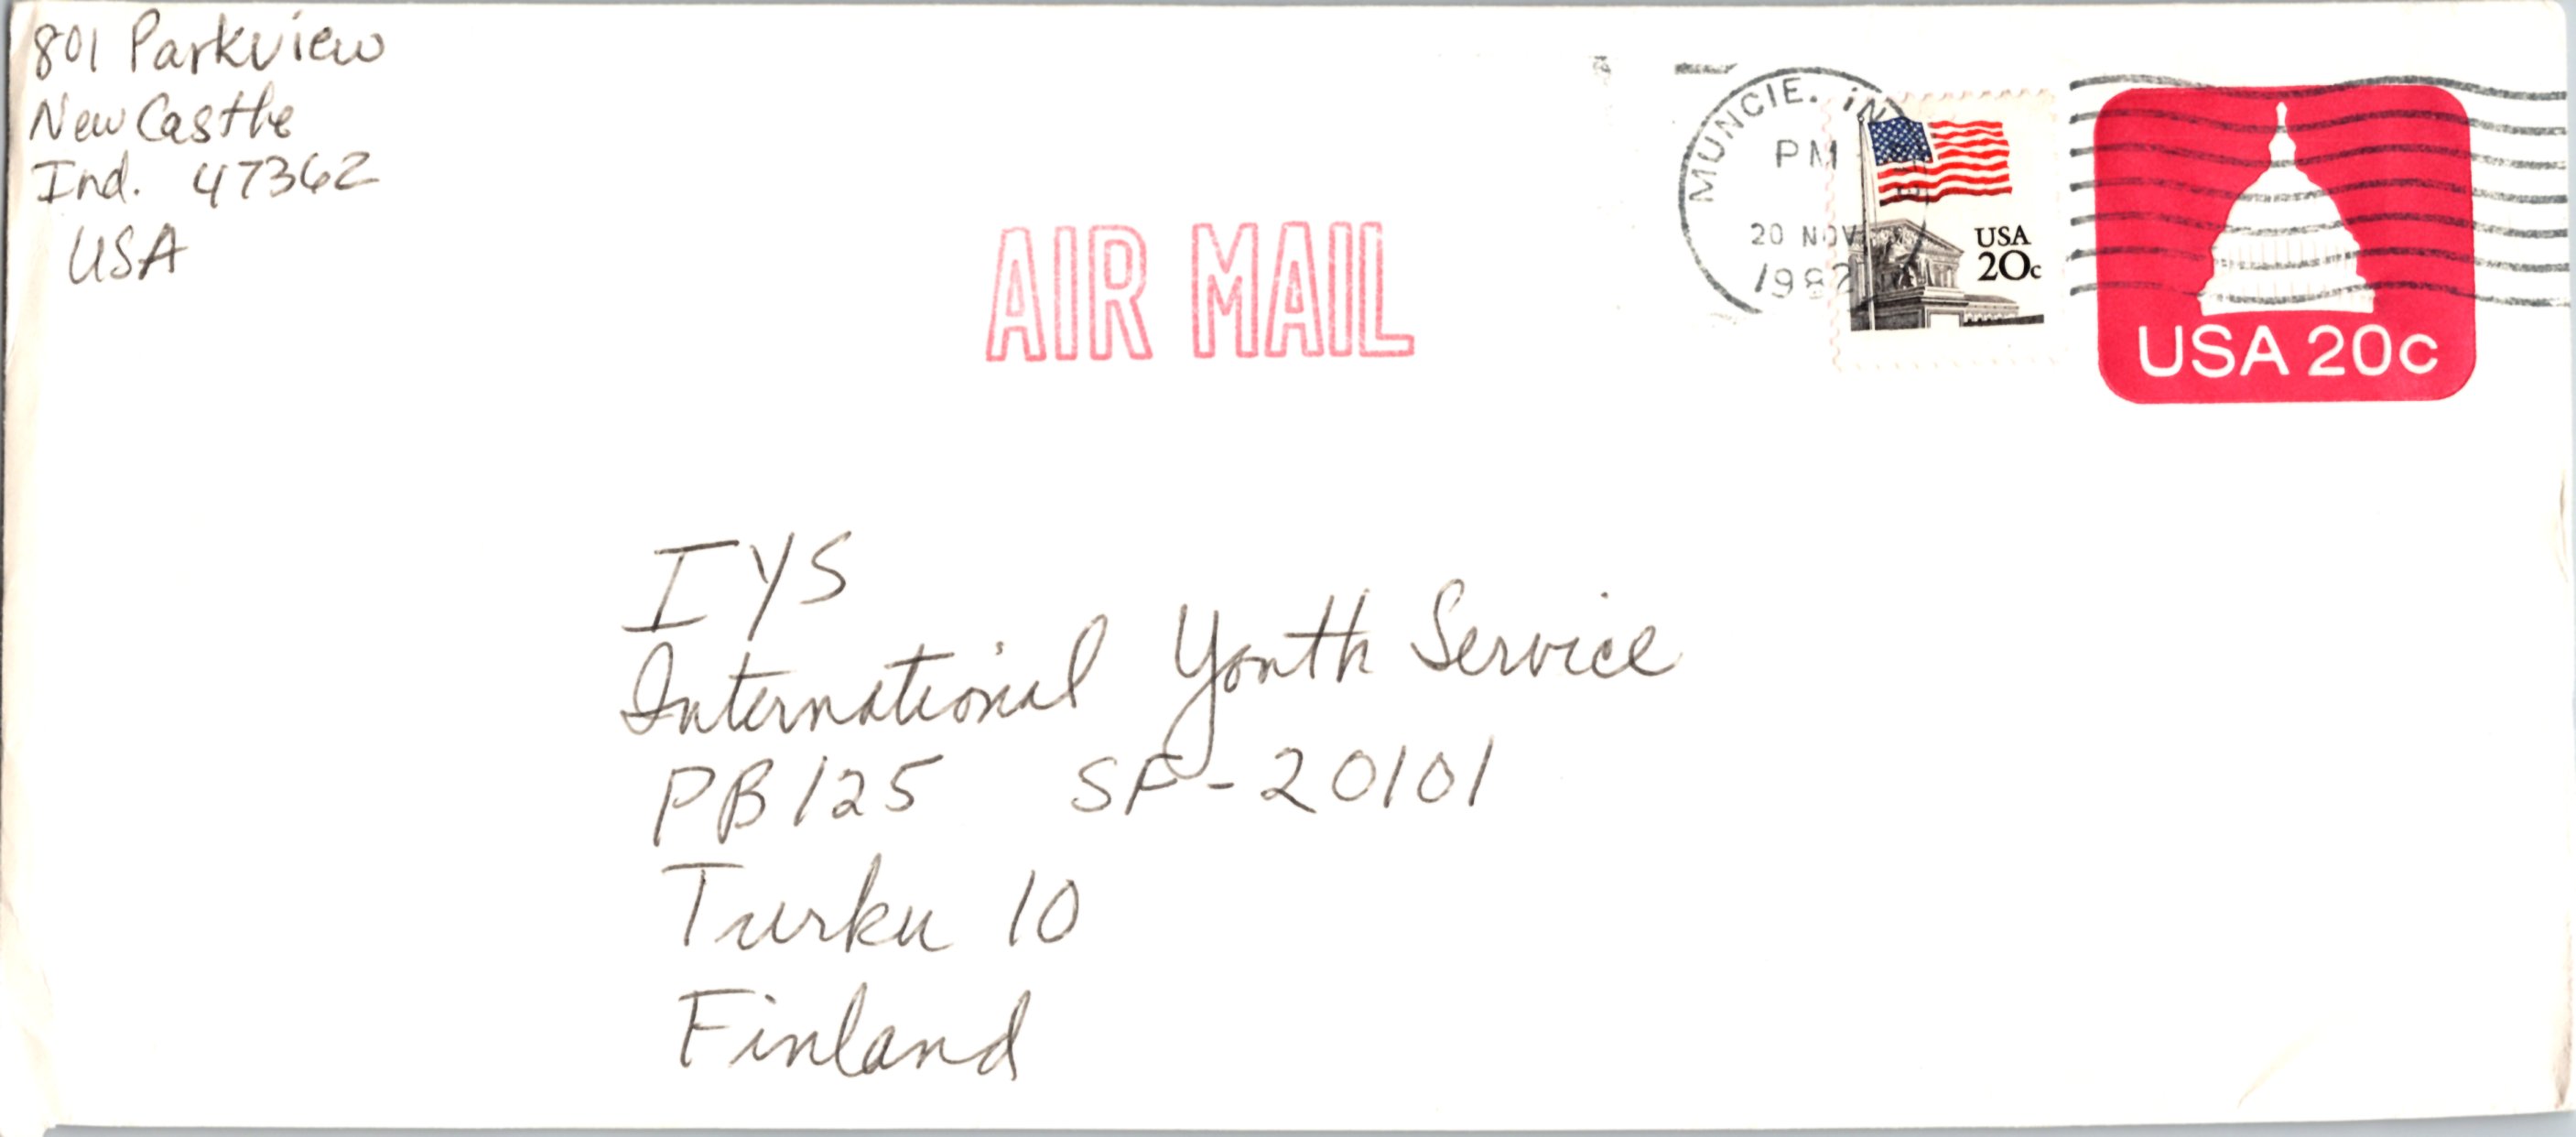 801 Parkview
New Castle
Ind. 47362
USA
AIR MAIL
MUNCIE. IN
PM
20 NOV
1982
USA
20c
USA 20c
IYS
International Youth Service
PB 125 SF-20101
Turku 10
Finland